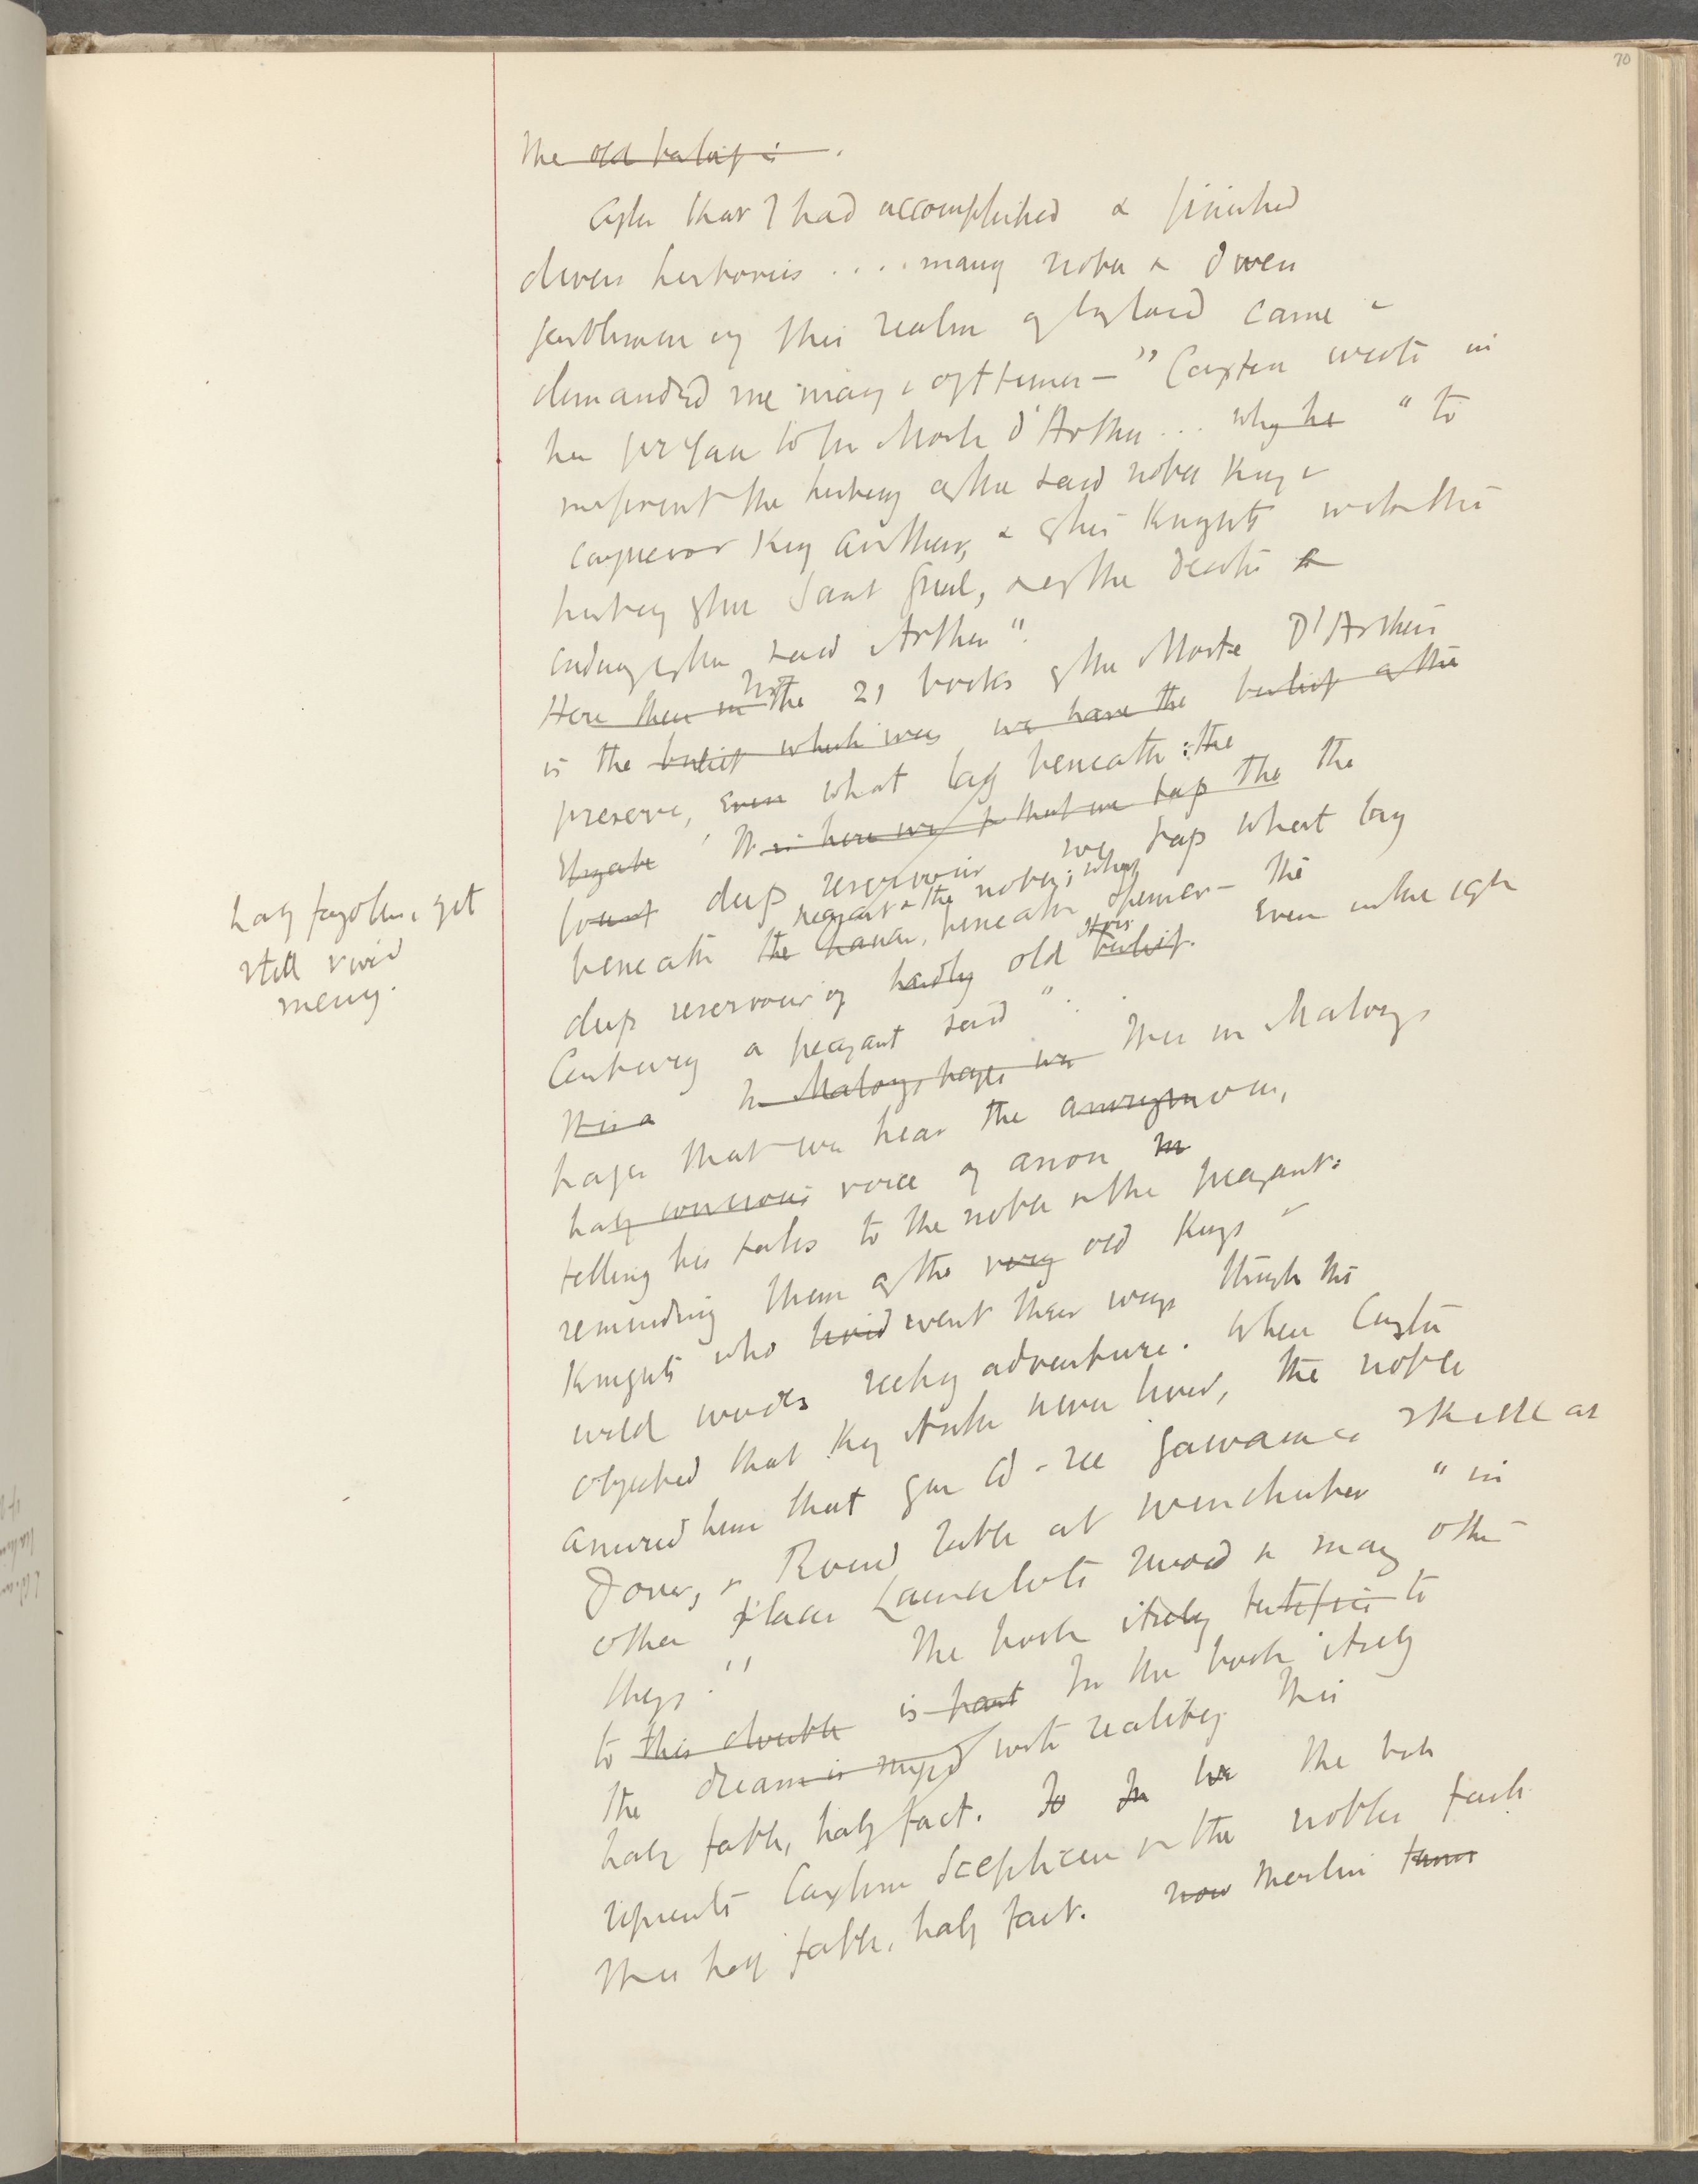 70
The old belief is .
After that I had accomplished & finished
divers histories .... many noble & divers
gentlemen of this realm of England came &
demanded me many & oft times —" Caxton wrote in
his preface to the Morte D'Arthur ... why he "to
imprint the history of the said noble King &
conqueror King Arthur, & of his Knights with the
history of the Saint Greal, & of the death &
ending of the said Arthur".
Here then in Now the 21 books of the Morte D'Arthur
is the belief which was we have the belief of the
preserve, even what lay beneath: the
Elizabe It is here we that we tap the the
fount deep reservoir we tap what lay
peasant & the noble; what
beneath the , beneath Spenser — the
half forgotten, yet
still vivid
memory.
deep reservoir of old belief. Even in the 19th
Century a peasant said " ".
It is a In Malorys pages we It is in Malorys
pages that we hear the anonymous,
half conscious voice of anon in
telling his tales to the noble & the peasant:
reminding them of the very old Kings &
Knights who lived went their ways through the
wild woods seeking adventure. When Caxton
objected that King Arthur never lived, the noble
assured him that you cd. see Gawaines skull at
Dover, & Round table at Winchester "in
other places Launcelots sword & many other
things." The book itself testifies to
to this double is part In the book itself
the dream is mixed with reality. This
half fable, half fact. To In he The book
represents Caxtons scepticism & the nobles faith
It is half fable, half fact. now Merlin turns